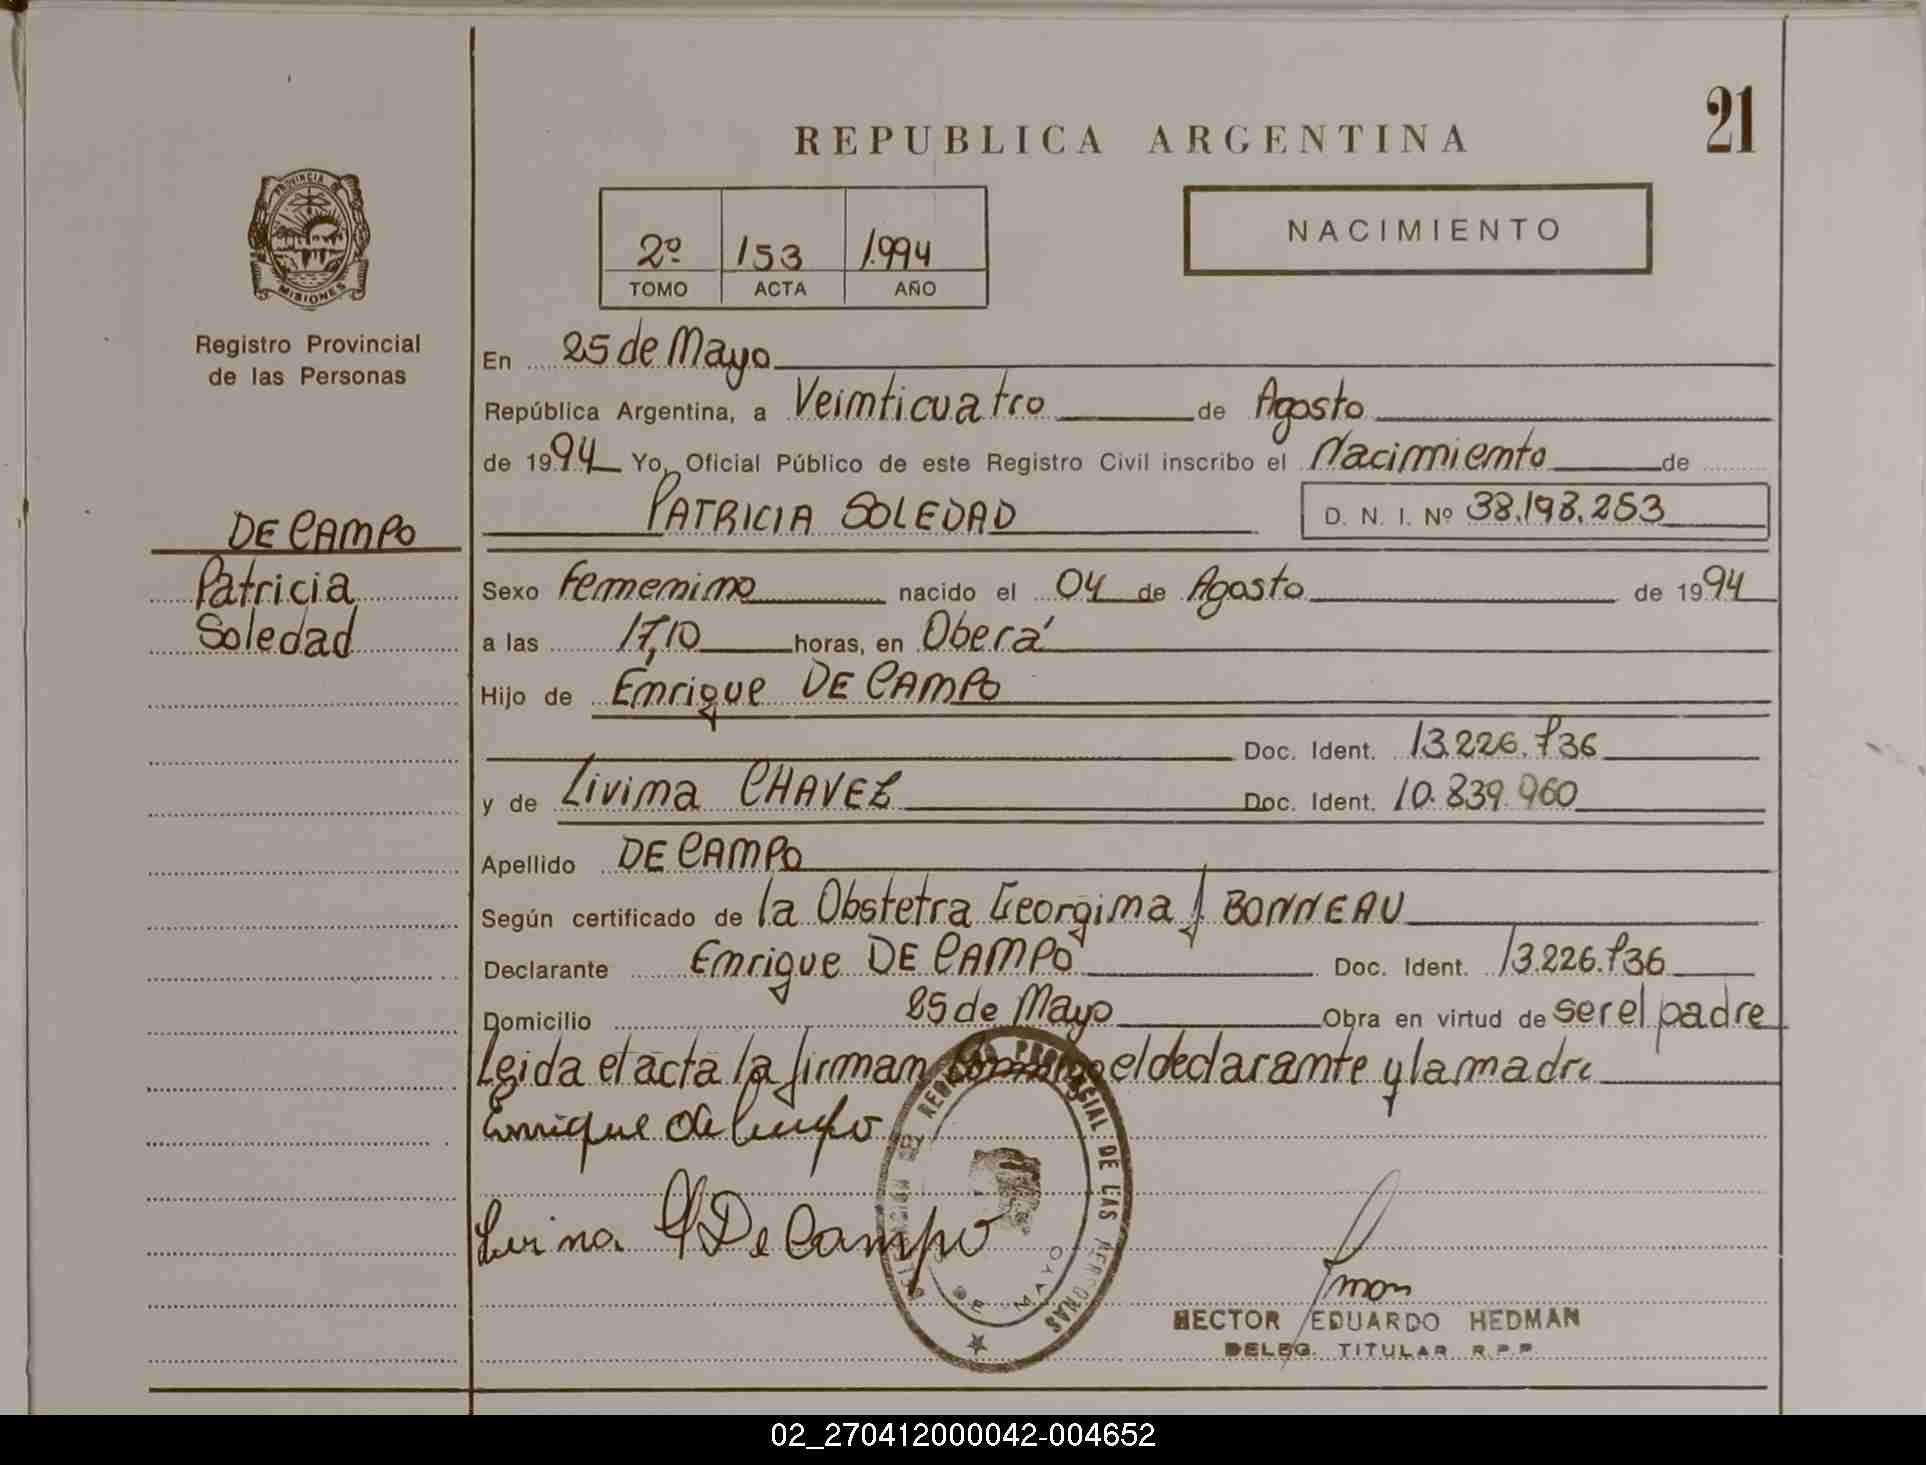 21
REPUBLICA ARGENTINA
NACIMIENTO
2º 153 1.994
TOMO ACTA AÑO
PROVINCIA DE
MISIONES
Registro Provincial
de las Personas
DE CAMPO
Patricia
Soledad
En 25 de Mayo
República Argentina, a Veinticuatro de Agosto
de 1994 Yo, Oficial Público de este Registro Civil inscribo el Nacimiento de
PATRICIA SOLEDAD D. N. I. Nº 38.198.253
Sexo Femenino nacido el 04 de Agosto de 1994
a las 17,10 horas, en Oberá
Hijo de Enrique DE CAMPO
Doc. Ident. 13.226.736
y de Livina CHAVEZ Doc. Ident. 10.839.960
Apellido DE CAMPO
Según certificado de la Obstetra Georgina J. BONNEAU
Declarante Enrique DE CAMPO Doc. Ident. 13.226.736
Domicilio 25 de Mayo Obra en virtud de ser el padre
Leida el acta la firman conmigo el declarante y la madre
Enrique de Campo
Livina Ch De Campo
REGISTRO PROVINCIAL DE LAS PERSONAS
DE MAYO
HECTOR EDUARDO HEDMAN
DELEG. TITULAR R.P.P
02_270412000042-004652